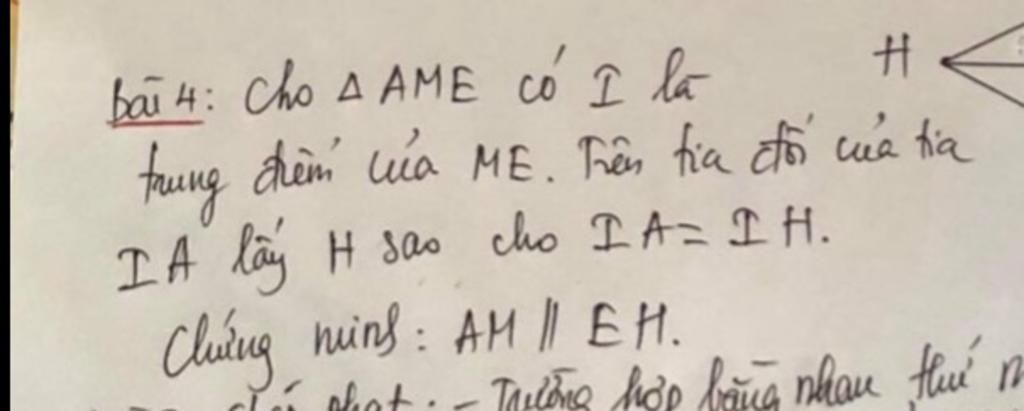 bài 4: Cho Δ AME có I là
H
trung điểm của ME. Trên tia đối của tia
IA lấy H sao cho IA = IH.
Chứng minh: AM // EH.
nhat. - Trường hợp bằng nhau thứ